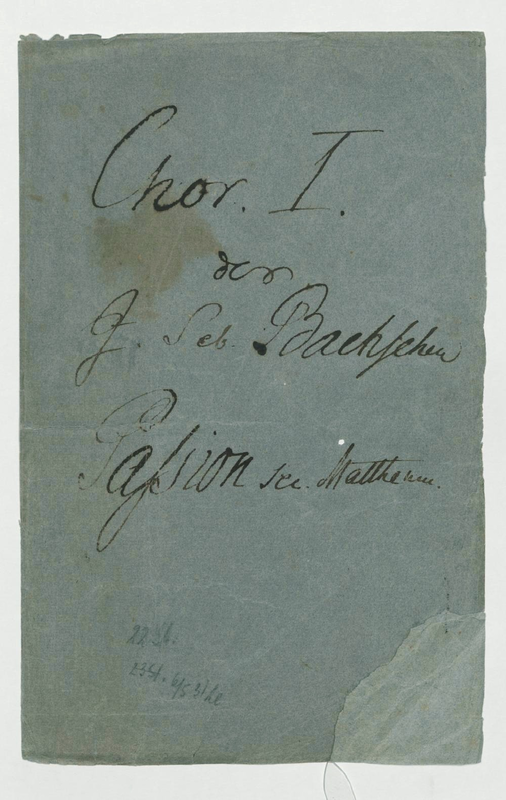 Chor. I.
der
J. Seb. Bachschen
Passion sec. Mattheum.
22 St.
23 St.